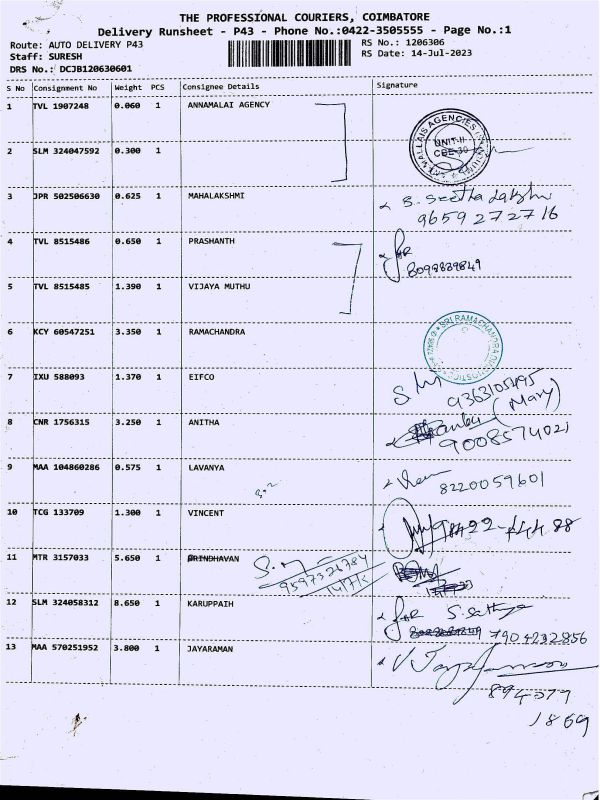 THE PROFESSIONAL COURIERS, COIMBATORE
Delivery Runsheet - P43 - Phone No.:0422-3505555 - Page No.:1
Route: AUTO DELIVERY P43 RS No.: 1206306
Staff: SURESH RS Date: 14-Jul-2023
DRS No.: DCJB120630601
S No Consignment No Weight PCS Consignee Details Signature
1 TVL 1907248 0.060 1 ANNAMALAI AGENCY
UNIT-II
CBE-30
2 SLM 324047592 0.300 1
3 JPR 502506630 0.625 1 MAHALAKSHMI B. Seetha Lakshmi
9659272716
4 TVL 8515486 0.650 1 PRASHANTH for
8098839849
5 TVL 8515485 1.390 1 VIJAYA MUTHU
6 KCY 60547251 3.350 1 RAMACHANDRA
SRI RAMACHANDRA
7 IXU 588093 1.370 1 EIFCO
(Mary)
8 CNR 1756315 3.250 1 ANITHA
9008574021
9 MAA 104860286 0.575 1 LAVANYA
8220059601
10 TCG 133709 1.300 1 VINCENT
11 MTR 3157033 5.650 1 BRINDHAVAN
12 SLM 324058312 8.650 1 KARUPPAIH for
7904232856
13 MAA 570251952 3.800 1 JAYARAMAN V Jayaraman
894079
1869